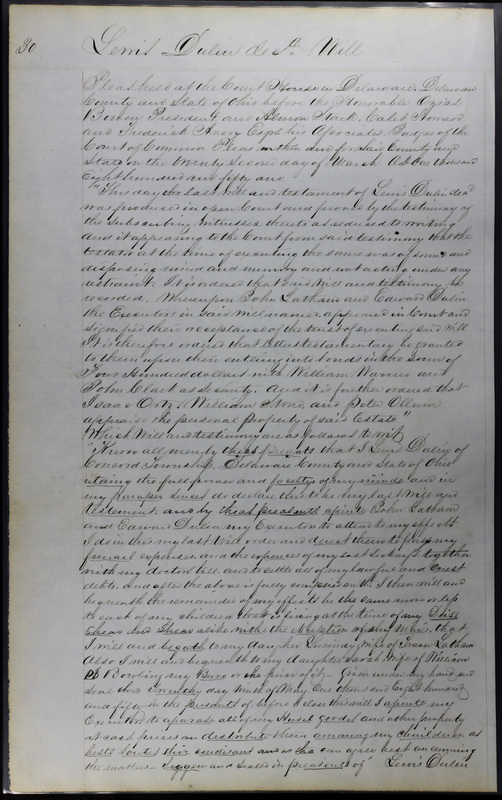 30
Lewis Dulin decd Will
Pleas held at the Court House in Delaware, Delaware
County and State of Ohio before the Honorable Ozias
Bowen President, and Almon Stark, Caleb Howard
and Frederick Avery Esqrs his Associates, Judges of the
Court of Common Pleas within and for said County and
State on the twenty second day of March AD One thousand
Eight hundred and fifty one
"This day the last will and testament of Lewis Dulin decd
was produced in open Court and proved by the testimony of
the subscribing witnesses thereto as reduced to writing
And it appearing to the Court from said testimony that the
testator at the time of executing the same was of sound and
disposing mind and memory and not acting under any
restraint. It is ordered that said Will and testimony be
recorded. Whereupon John Latham and Edward Dulin
the Executors in said will named appeared in Court and
signified their acceptance of the trust of executing said Will
It is therefore ordered that letters testamentary be granted
to them upon their entering into bonds in the sum of
Four Hundred dollars with William Warren and
John Clark as security. And it is further ordered that
Isaac William Stone, and Peter
appraise the personal property of said Estate"
Which Will and testimony are as follows to wit
"Know all men by these presents that I Lewis Dulin of
Concord Township, Delaware County and State of Ohio
the full power and faculty of my minde and in
my sences do declare this to be my last Will and
testement. and by these presents apoint John Latham
and Edward Dulin my Executors to attend to my effects
I do in this my last Will order and derect them to pay my
funeral expenses, and the expences of my last sickness together
with my doctors bill and to settle all of my lawful and
debts. and after the above is fully I then will and
bequeath the remainder of my effects be the same more or less
to each of my children that is living at the time of my
Share and Shear alike with the exseption of my that
I will and to my daughter wife of Latham
Also I will and bequeath to my daughter Sarah Wife of William
Bowling my Buro or the price of it. Given under my hand and
seal this day Month of May One thousand eight hundred
and fifty in the of before I close this will I apoint my
Executors to all of my goods and other property
at cash prices an distribute them amoung my children as
their condicions and as the can agree best on amoung
the and sealed in of" Lewis Dulin